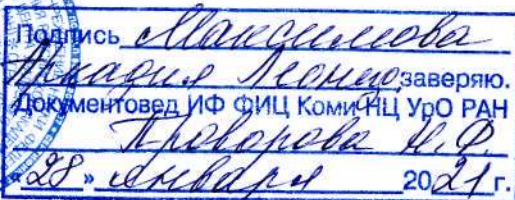 Подпись Максимова
Аркадия Леонидо заверяю.
Документовед ИФ ФИЦ Коми НЦ УрО РАН
Проворова И.Ф.
«28» января 2021 г.